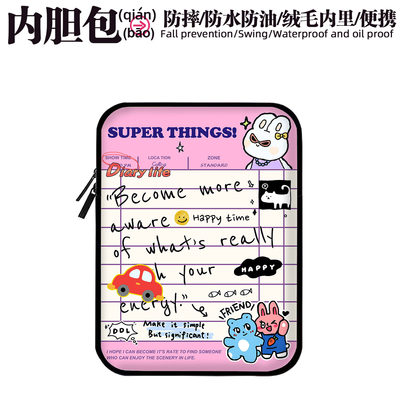 内胆包
(qián)
(bāo)
防摔/防水防油/绒毛内里/便携
Fall prevention/Swing/Waterproof and oil proof
SUPER THINGS!
SHOW TIME LOCATION ZONE
STANDARD
Diary life
"Become more
aware Happy time
of what's really
h your
HAPPY
energy."
FRIEND
DDL
Make it simple
But significant!
I HOPE I CAN BECOME IT'S RATE TO FIND SOMEONE
WHO CAN ENJOY THE SCENERY IN LIFE.